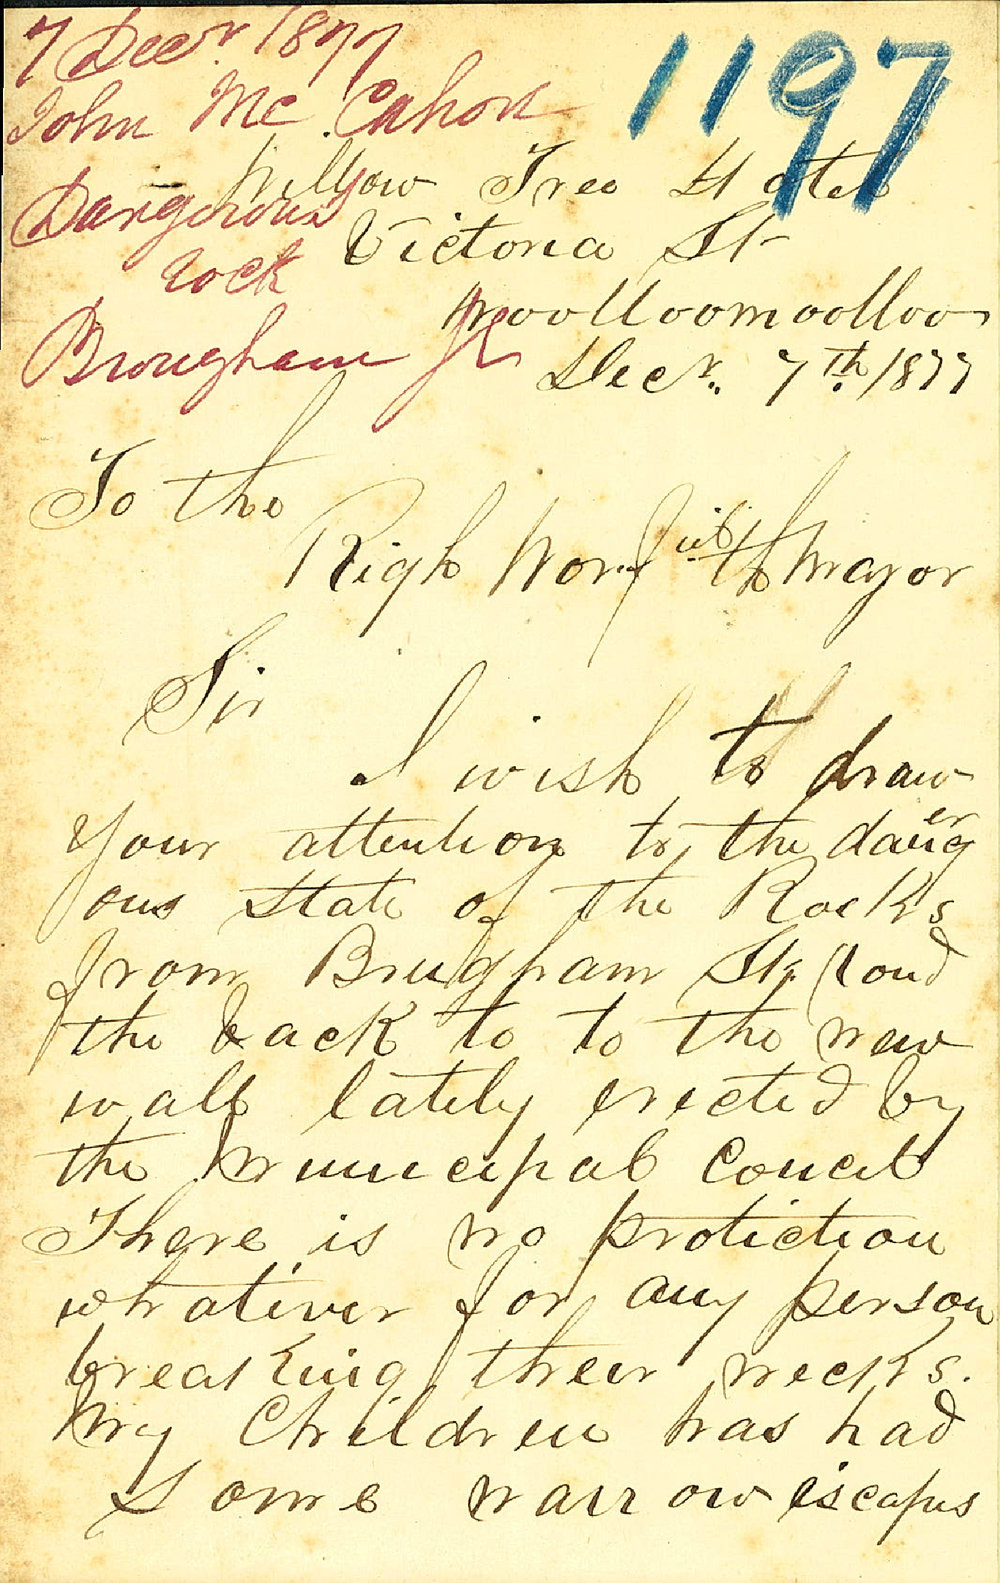 7 Decr. 1877
John Mc Cahon
Dangerous
rock
Brougham St
1197
Willow Tree Hotel
Victoria St
Woolloomoolloo
Decr. 7th/1877
To the
Righ Worf the Mayor
Sir
I wish to draw
Your attention to the dang er
ous State of the Rocks
from Brugham St
the back to to the new
wall lately erected by
the Municipal Council
There is no protiction
whatiever for any person
breaking their necks.
My Children has had
Some narrow iscapes